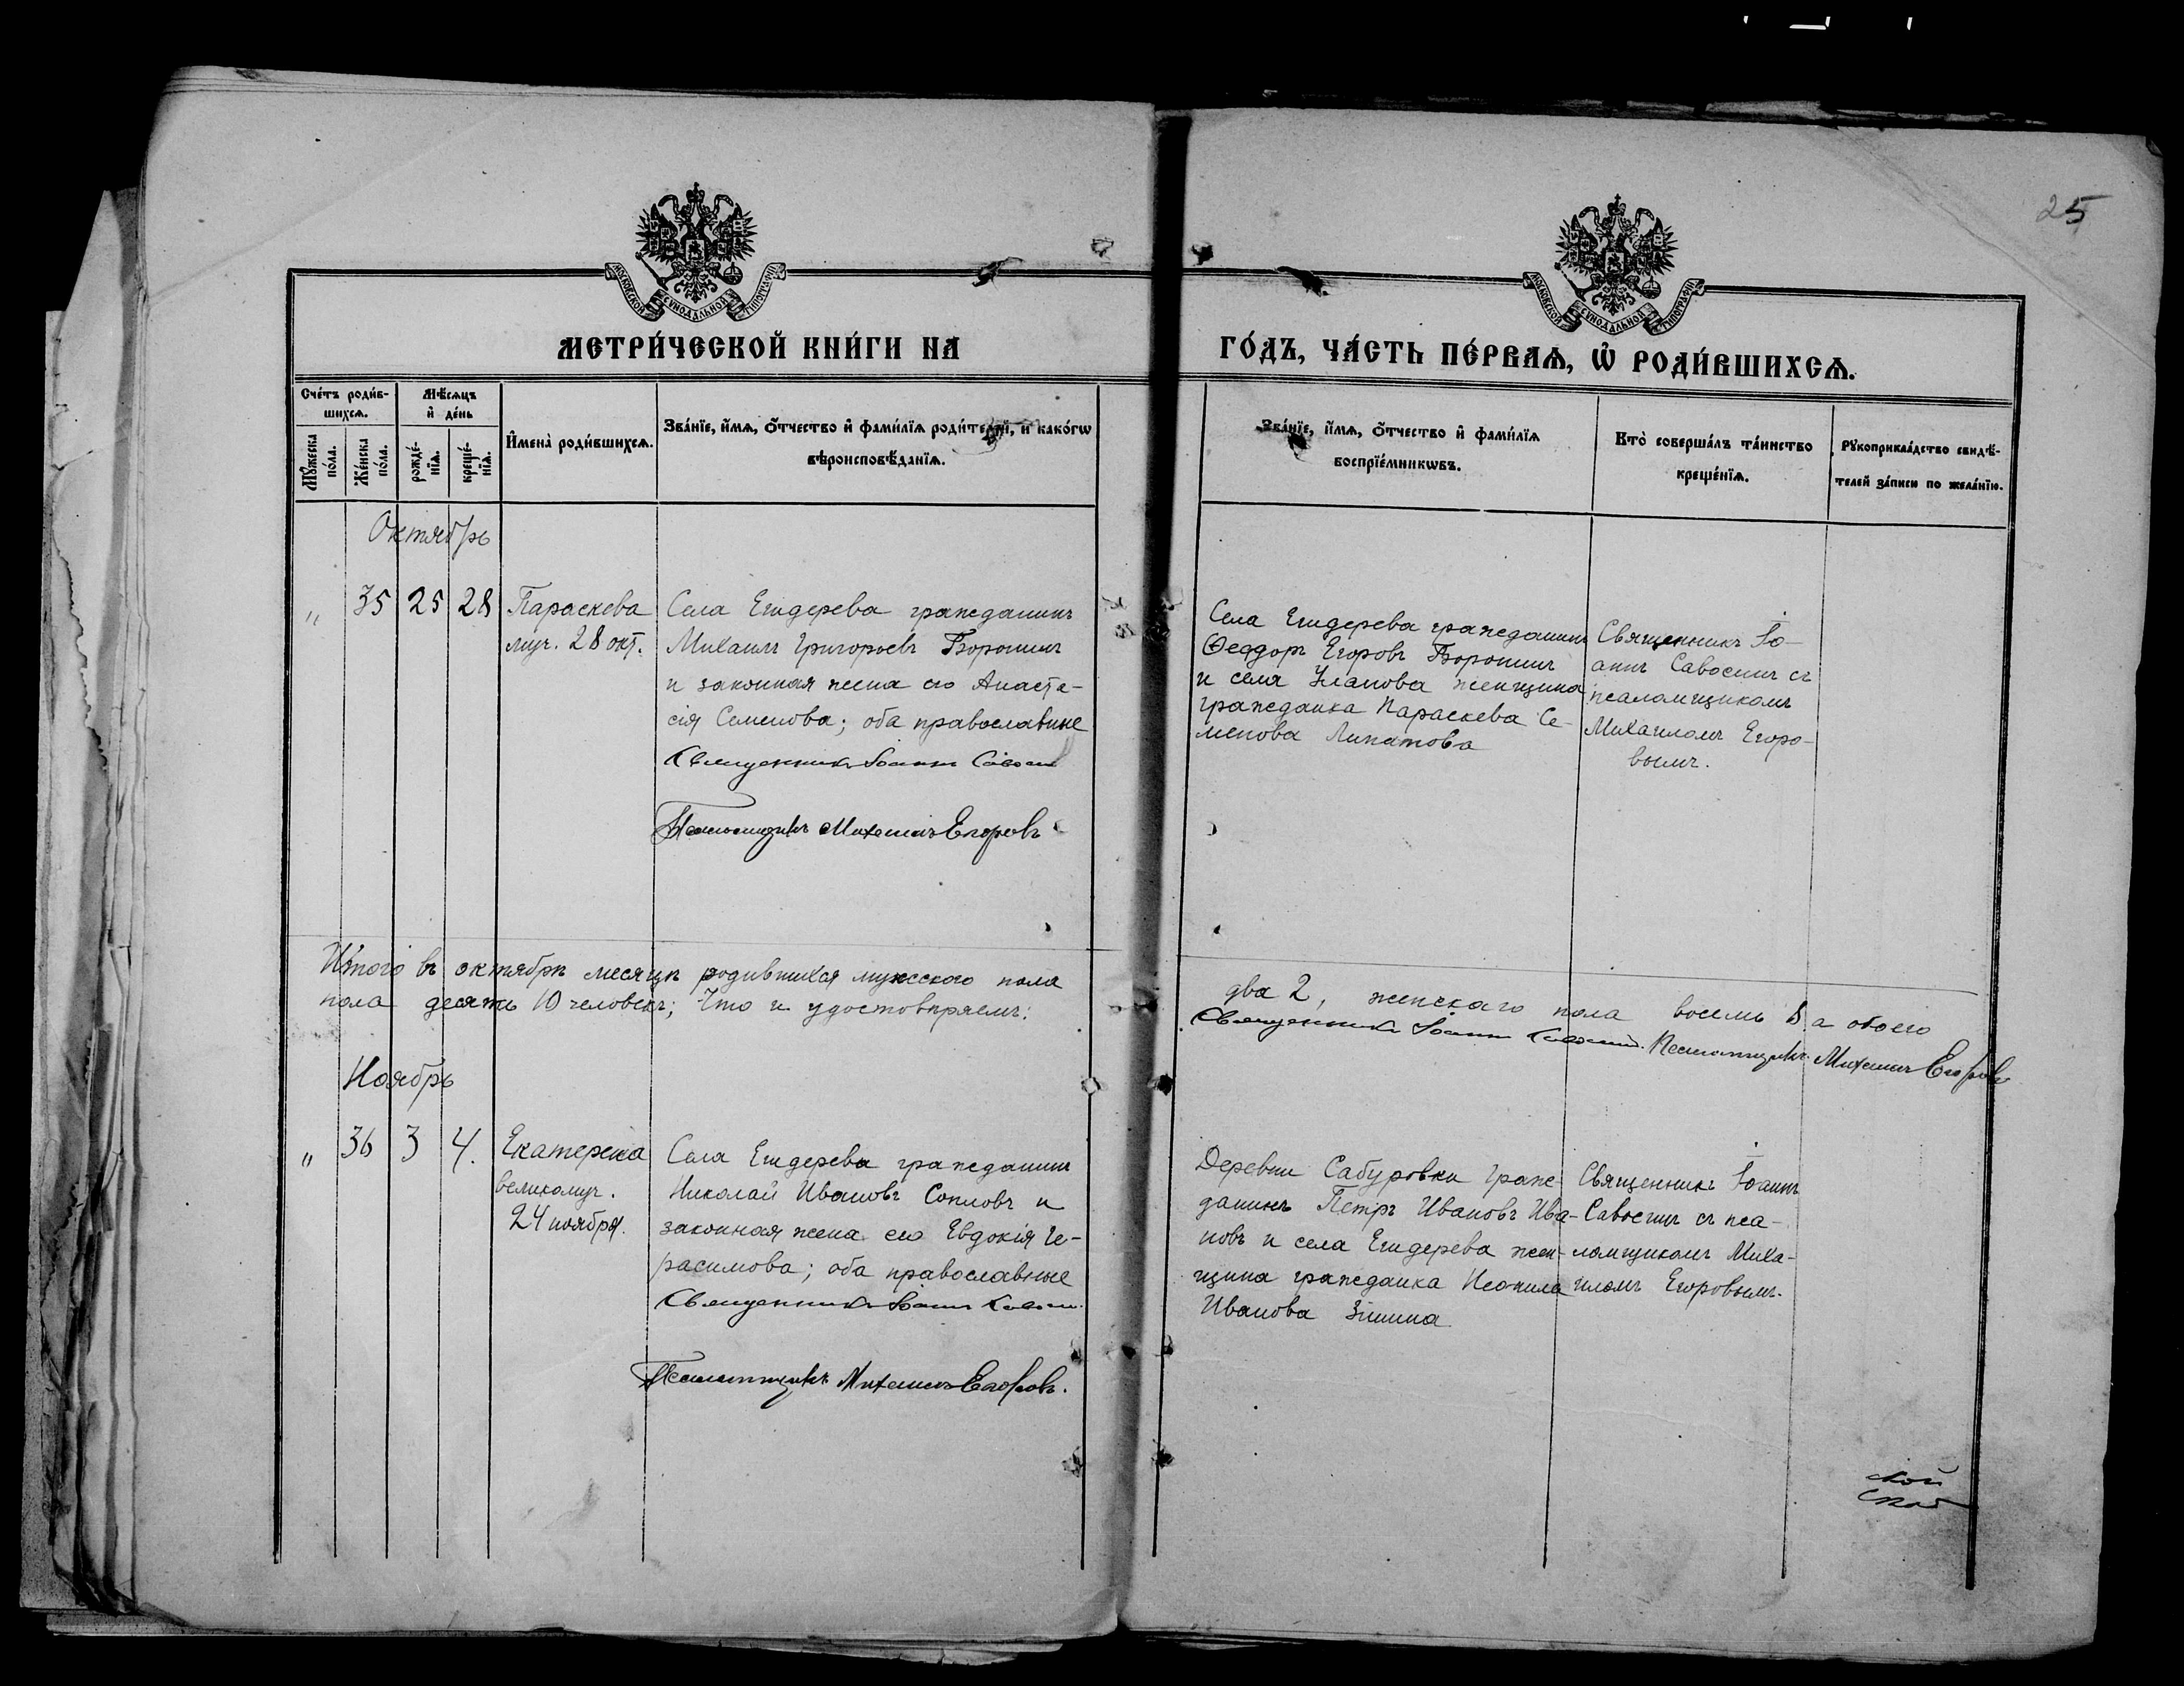 25
МОСКОВСКОЙ СѴНОДАЛЬНОЙ ТИПОГРАФІИ
МОСКОВСКОЙ СѴНОДАЛЬНОЙ ТИПОГРАФІИ
МЕТРИ́ЧЕСКОЙ КНИ́ГИ НА
ГО́ДЪ, ЧА́СТЬ ПЕ́РВАѦ, Ѡ҆ РОДИ́ВШИХСѦ.
Сче́тъ роди́в-
шихсѧ.
Мѣ́сѧцъ
и҆ де́нь
Мꙋ́жеска
по́ла.
Же́нска
по́ла.
рожде́-
нїѧ.
креще́-
нїѧ.
И҆мена̀ роди́вшихсѧ.
Зва́нїе, и҆́мѧ, ѻ҆́тчество и҆ фами́лїѧ роди́телей, и како́гѡ
вѣроисповѣ́данїѧ.
Зва́нїе, и҆́мѧ, ѻ҆́тчество и҆ фами́лїѧ
воспрїе́мникѡвъ.
Кто̀ соверша́лъ та́инство
креще́нїѧ.
Рꙋкоприкла́дство свидѣ́-
телей за́писи по жела́нїю.
Октябрь
" 35 25 28 Параскева
муч. 28 окт.
Села Ендерева гражданинъ
Михаилъ Григорьевъ Воронинъ
и законная жена его Анаста-
сія Семенова; оба православные
Священникъ Іоаннъ Савосин
Псаломщикъ Михаилъ Егоровъ
Села Ендерева гражданинъ
Ѳеодоръ Егоровъ Воронинъ
и села Уланова женщина
гражданка Параскева Се-
менова Липатова
Священникъ Іо-
аннъ Савосинъ съ
псаломщикомъ
Михаиломъ Егоро-
вымъ.
Итого въ октябрѣ месяцѣ родившихся мужского пола
два 2, женскаго пола восемь 8 а обоего
пола десять 10 человекъ; Что и удостовѣряемъ:
Священникъ Іоаннъ Савосин. Псаломщикъ Михаилъ Егоровъ
Ноябрь
" 36 3 4. Екатерена
великомуч.
24 ноября.
Села Ендерева гражданинъ
Николай Ивановъ Сопловъ и
законная жена его Евдокія Ге-
расимова; оба православные
Священникъ Іоаннъ Савосин.
Псаломщикъ Михаилъ Егоровъ.
Деревни Сабуровки граж-
данинъ Петръ Ивановъ Ива-
новъ и села Ендерева жен-
щина гражданка Неонила
Иванова Зимина
Священникъ Іоаннъ
Савосинъ съ пса-
ломщикомъ Миха-
иломъ Егоровымъ.